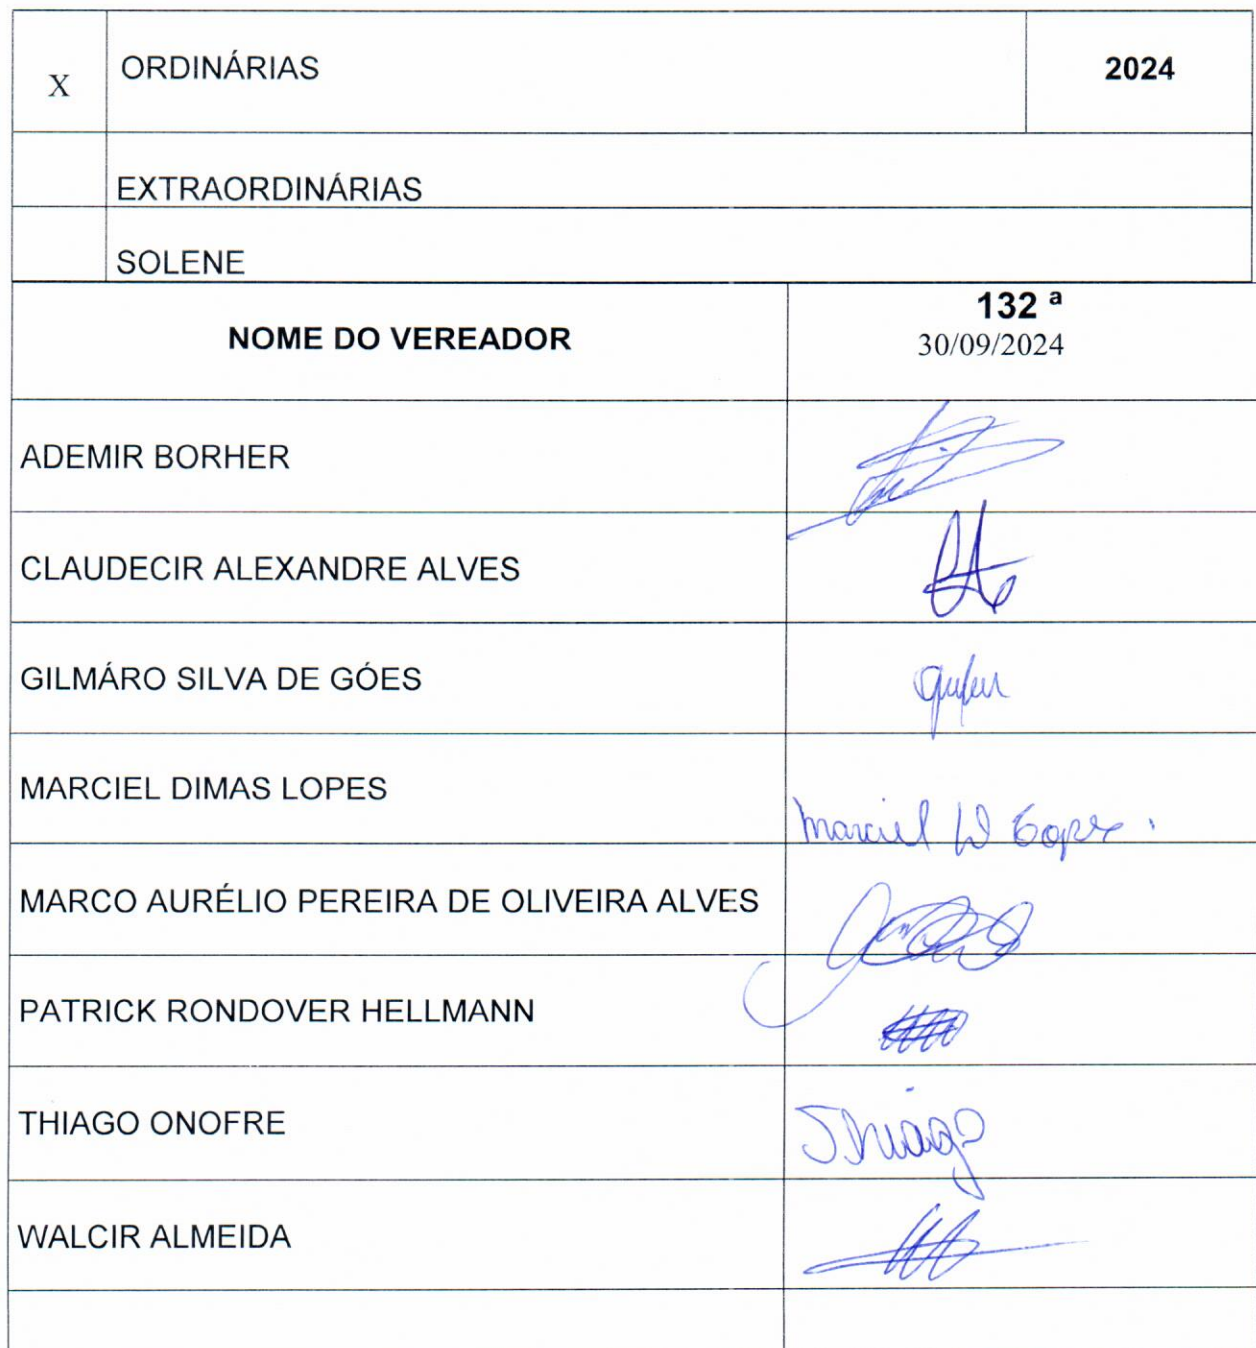 X ORDINÁRIAS 2024
EXTRAORDINÁRIAS
SOLENE
NOME DO VEREADOR 132 ª
30/09/2024
ADEMIR BORHER
CLAUDECIR ALEXANDRE ALVES
GILMÁRO SILVA DE GÓES
MARCIEL DIMAS LOPES
Marciel D Lopes
MARCO AURÉLIO PEREIRA DE OLIVEIRA ALVES
PATRICK RONDOVER HELLMANN
THIAGO ONOFRE Thiago
WALCIR ALMEIDA